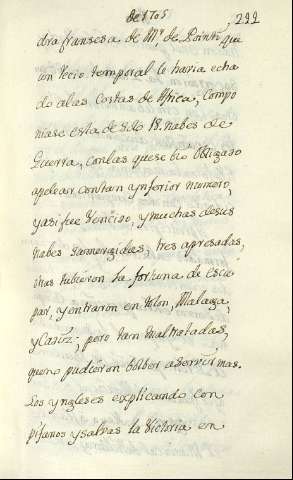 de 1705
299
dra fransesa de Mr. de Pointi, que
un recio temporal le havia echa
do alas Costas de Africa, compo
niase esta de solo 18. nabes de
Guerra, conlas quese bió obligado
apelear contan ynferior numero,
yasi fue Vencido, y muchas desus
nabes sumergidas, tres apresadas,
otras tubieron la fortuna de esca
par, y entraron en tolon, Malaga,
y Cadiz; pero tan maltratadas,
queno pudieron bolber aservir mas.
Los yngleses explicando con
pifanos y salvas la Victoria en